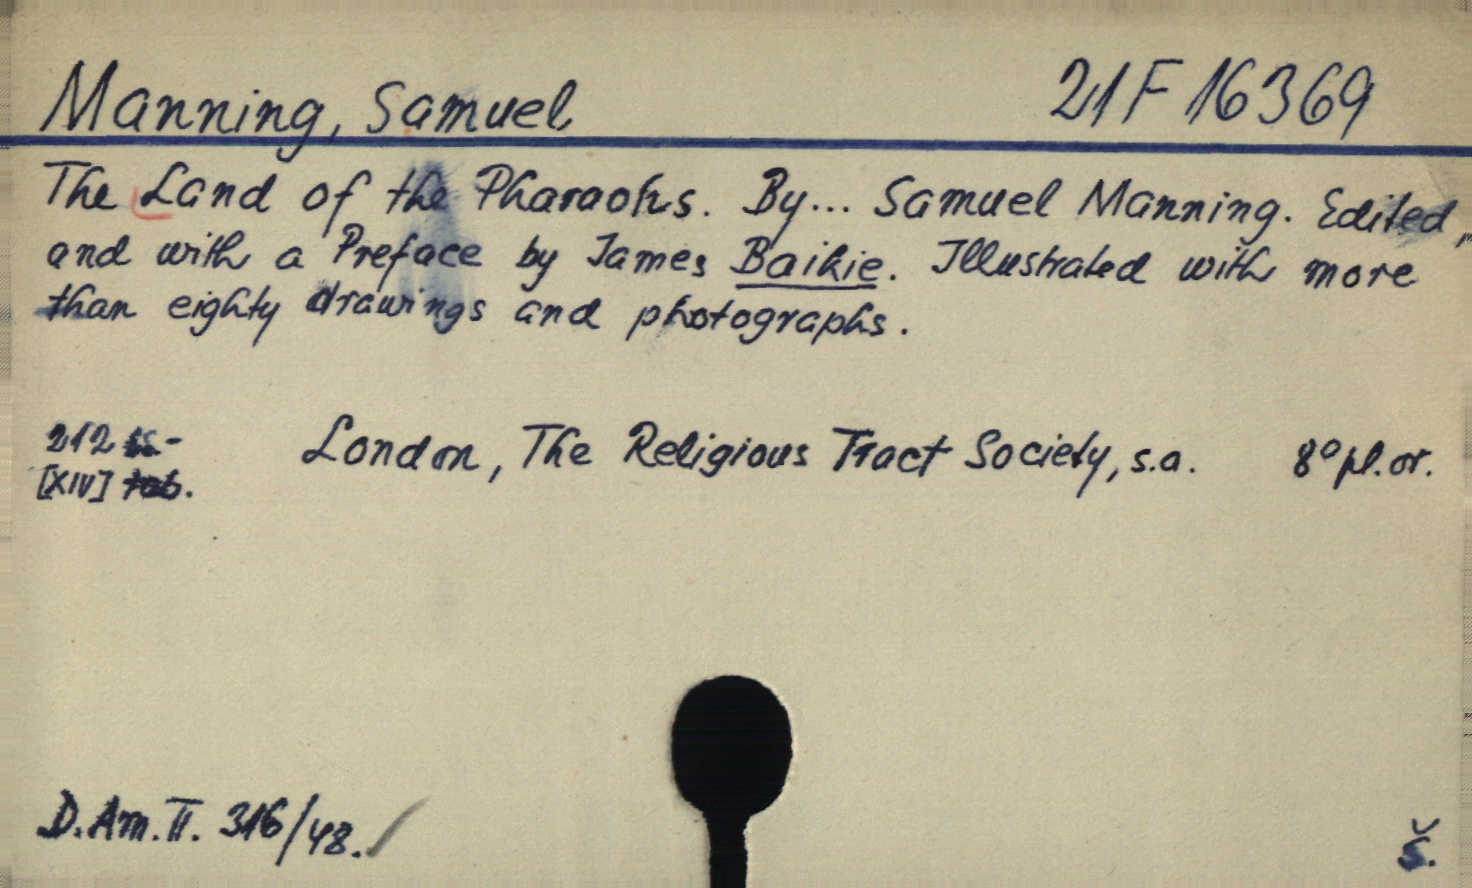 Manning, Samuel
21 F 16369
The Land of the Pharaohs. By... Samuel Manning. Edited,
and with a Preface by James Baikie. Illustrated with more
than eighty drawings and photographs.
212 ss.-
[XIV] tab.
London, The Religious Tract Society, s.a.
8° pl. or.
D. Am. II. 316/48.
Š.